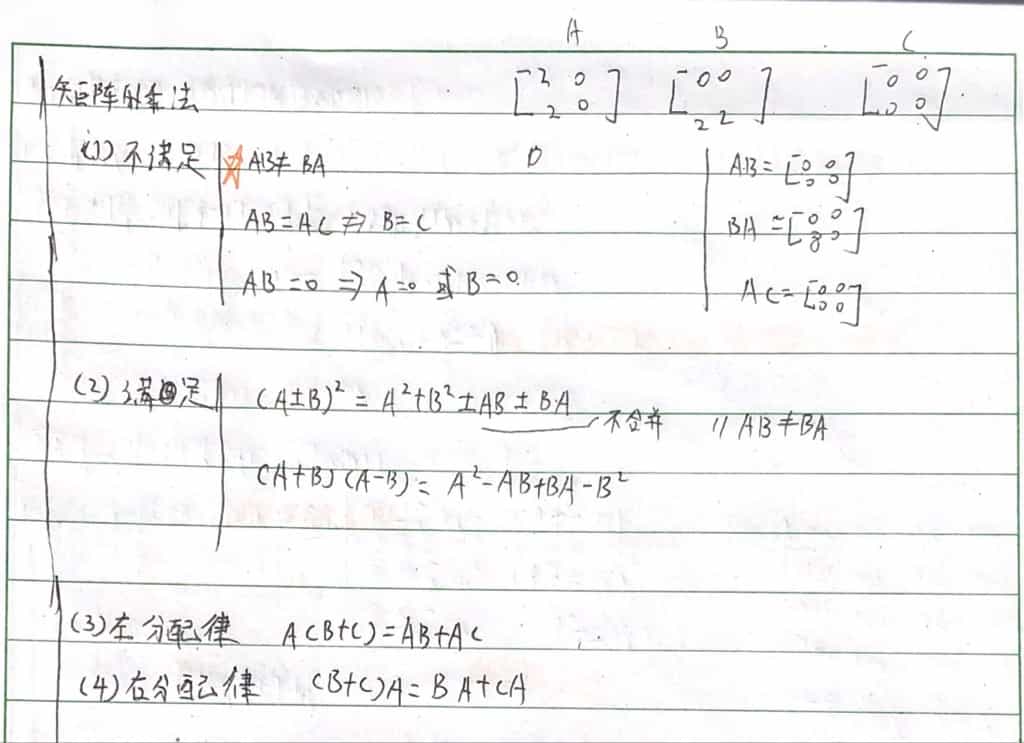 A B C
矩阵的乘法 [2 0 2 0] [0 0 2 2] [0 0 0 0]
(1) 不满足 ☆ AB≠BA 0 AB=[0 0 0 0]
AB=AC ⇏ B=C BA=[0 0 8 0]
AB=0 ⇒ A=0 或 B=0 AC=[0 0 0 0]
(2) 满足 (A±B)²=A²+B²±AB±BA 不合并 // AB≠BA
(A+B)(A-B)=A²-AB+BA-B²
(3) 左分配律 A(B+C)=AB+AC
(4) 右分配律 (B+C)A=BA+CA